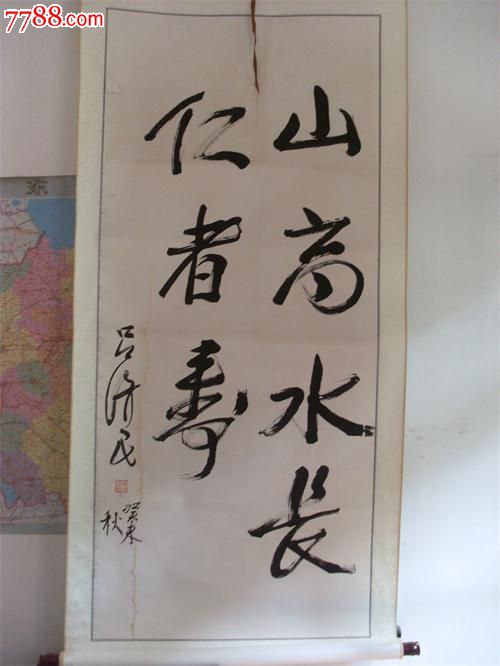 7788.com
山高水长
仁者寿
吕济民
癸未
秋
东